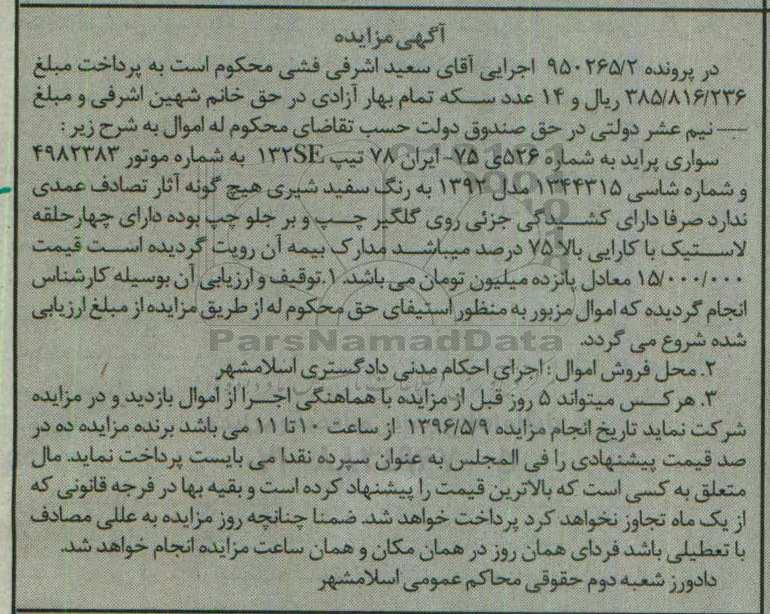 آگهی مزایده
در پرونده ۹۵۰۲۶۵/۲ اجرایی آقای سعید اشرفی فشی محکوم است به پرداخت مبلغ
۳۸۵/۸۱۶/۲۳۶ ریال و ۱۴ عدد سکه تمام بهار آزادی در حق خانم شهین اشرفی و مبلغ
--- نیم عشر دولتی در حق صندوق دولت حسب تقاضای محکوم له اموال به شرح زیر :
سواری پراید به شماره ۵۲۶ی ۷۵- ایران ۷۸ تیپ ۱۳۲SE به شماره موتور ۴۹۸۲۳۸۳
و شماره شاسی ۱۳۴۴۳۱۵ مدل ۱۳۹۲ به رنگ سفید شیری هیچ گونه آثار تصادف عمدی
ندارد صرفا دارای کشیدگی جزئی روی گلگیر چپ و بر جلو چپ بوده دارای چهارحلقه
لاستیک با کارایی بالا ۷۵ درصد میباشد مدارک بیمه آن رویت گردیده است قیمت
۱۵/۰۰۰/۰۰۰ معادل پانزده میلیون تومان می باشد. ۱.توقیف و ارزیابی آن بوسیله کارشناس
انجام گردیده که اموال مزبور به منظور استیفای حق محکوم له از طریق مزایده از مبلغ ارزیابی
شده شروع می گردد.
ParsNamadData
۲. محل فروش اموال : اجرای احکام مدنی دادگستری اسلامشهر
۳. هرکس میتواند ۵ روز قبل از مزایده با هماهنگی اجرا از اموال بازدید و در مزایده
شرکت نماید تاریخ انجام مزایده ۱۳۹۶/۵/۹ از ساعت ۱۰ تا ۱۱ می باشد برنده مزایده ده در
صد قیمت پیشنهادی را فی المجلس به عنوان سپرده نقدا می بایست پرداخت نماید. مال
متعلق به کسی است که بالاترین قیمت را پیشنهاد کرده است و بقیه بها در فرجه قانونی که
از یک ماه تجاوز نخواهد کرد پرداخت خواهد شد. ضمنا چنانچه روز مزایده به عللی مصادف
با تعطیلی باشد فردای همان روز در همان مکان و همان ساعت مزایده انجام خواهد شد.
دادورز شعبه دوم حقوقی محاکم عمومی اسلامشهر